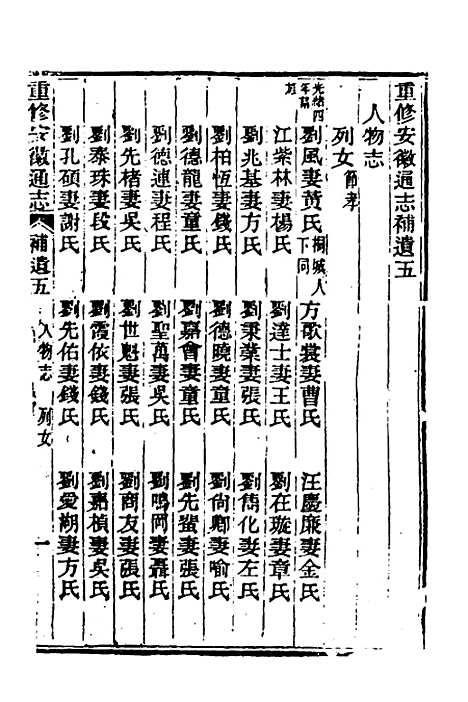 重修安徽通志補遺五
人物志
列女節孝
光緒四年請旌
劉風妻黃氏桐城人下同 方歌裳妻曹氏 汪慶廉妻金氏
江紫林妻楊氏 劉達士妻王氏 劉在璇妻章氏
劉兆基妻方氏 劉秉業妻張氏 劉儁化妻左氏
劉柏恆妻錢氏 劉德曉妻童氏 劉尙卿妻喻氏
劉德龍妻童氏 劉嘉會妻童氏 劉先蜚妻張氏
劉德連妻程氏 劉聖萬妻吳氏 劉鳴岡妻聶氏
劉先楮妻吳氏 劉世魁妻張氏 劉商友妻張氏
劉泰珠妻段氏 劉霞依妻錢氏 劉嘉楨妻吳氏
劉孔碩妻謝氏 劉先佑妻錢氏 劉愛湖妻方氏
重修安徽通志 補遺五 人物志 列女 一